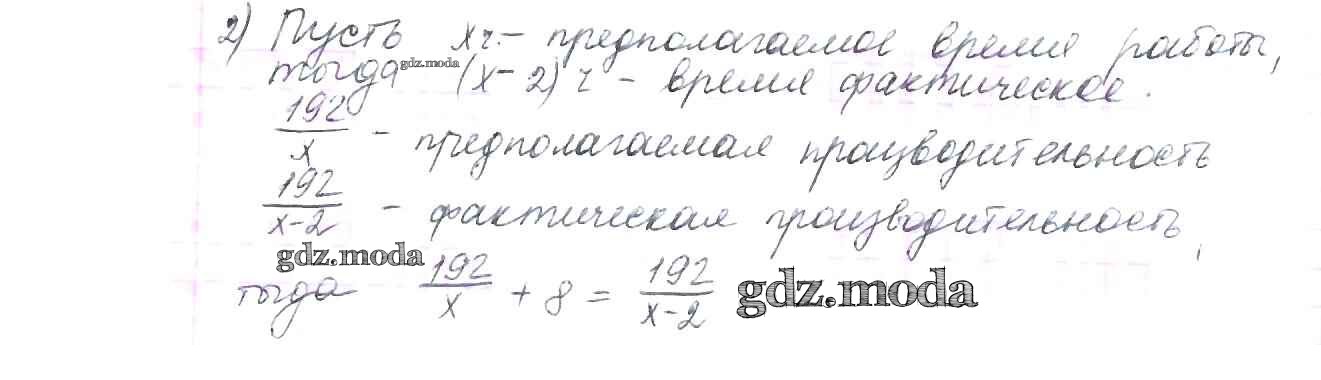 2) Пусть x ч. - предполагаемое время работы,
тогда gdz.moda (x - 2) ч - время фактическое.
192/x - предполагаемая производительность
192/(x-2) - фактическая производительность,
gdz.moda
тогда 192/x + 8 = 192/(x-2) gdz.moda